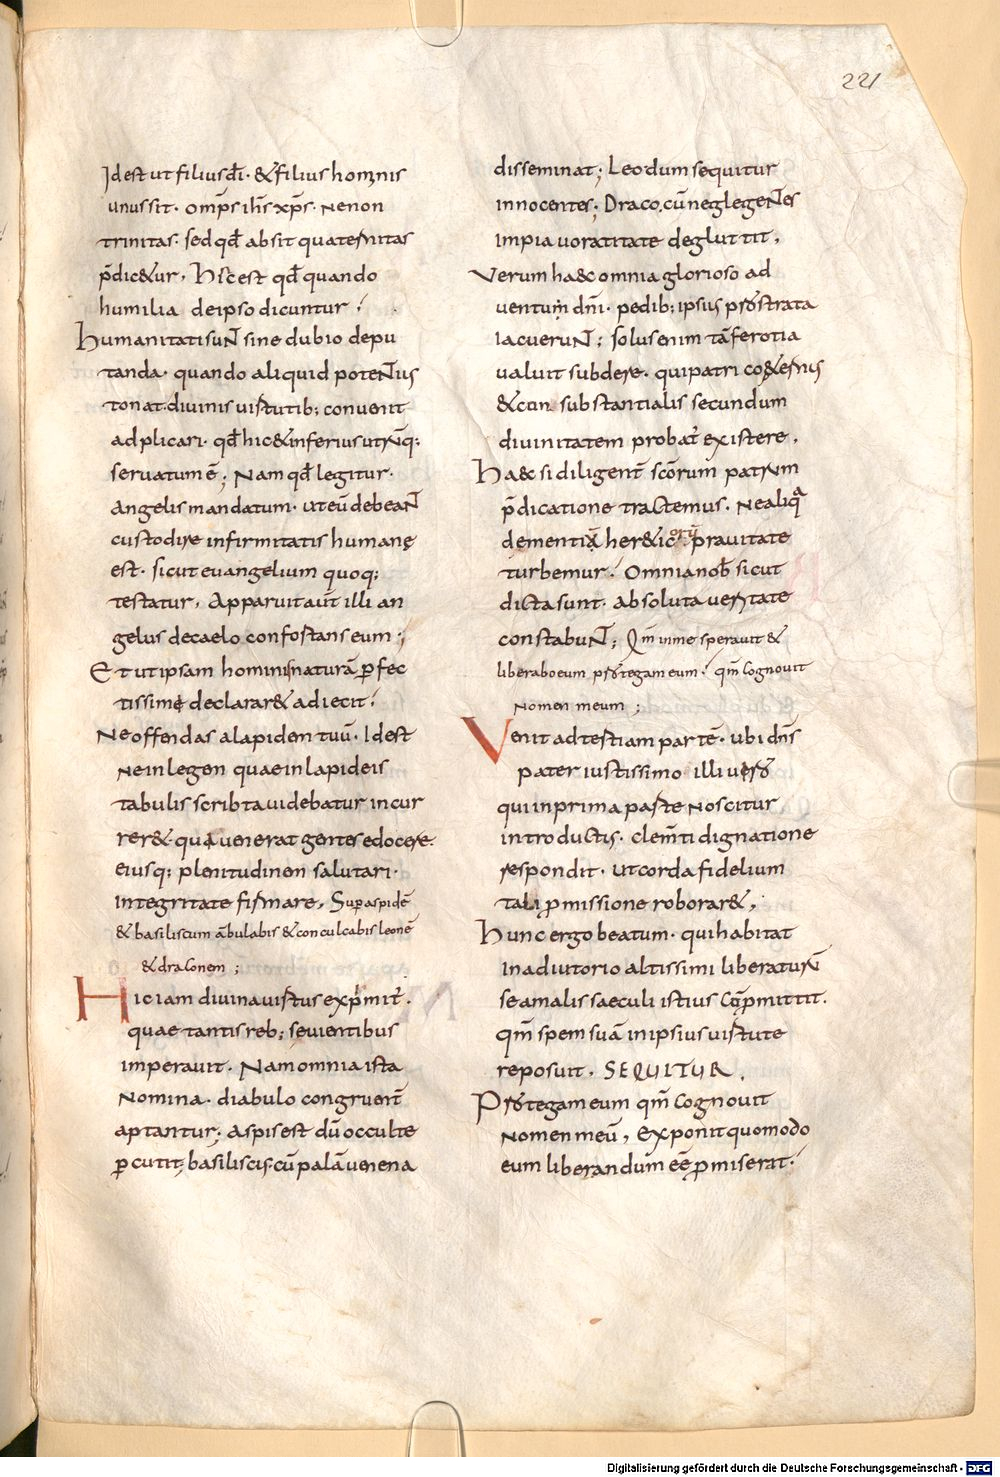 221
Idest ut filius dī· & filius hominis
unus sit· omp̄s ihs̄ xp̄s· Ne non
trinitas· sed qđ absit quaternitas
p̄dic&ur, Hic est qđ quando
humilia de ipso dicuntur!
humanitati sunt sine dubio depu
tanda· quando aliquid potentius
tonat· divinis virtutib; convenit
adplicari· qđ hic & inferius utrūq;
servatum ē; Nam qđ legitur·
angelis mandatum· ut eū debeant
custodire infirmitatis humanę
est· sicut evangelium quoq;
testatur, Apparuit aut̄ illi an
gelus de caelo confostans eum;
Et ut ipsam hominis naturā perfec
tissimę declarar& adiecit!
Ne offendas a lapiden tuū· Idest
Ne in legen quae in lapideis
tabulis scribta videbatur incur
rer&· qua venerat gentes edocere·
eiusq; plenitudinen salutari·
integritate firmare, Super aspidē
& basiliscum ābulabis & conculcabis leonē
& draconem;
Hic iam divina virtus exprimit̄·
quae tantis reb; sevientibus
imperavit· Nam omnia ista
Nomina· diabulo congruent̄
aptantur; aspis est dū occulte
percutit; basiliscis· cū palā venena
disseminat; Leo· dum sequitur
innocentes; Draco, cū neglegentes
impia voratitate degluttit,
Verum ha&c omnia glorioso ad
ventum dn̄i· pedib; ipsius prostrata
iacuerunt; solus enim tā ferotia
valuit subdere· qui patri co&ernus
& cun substantialis secundum
divinitatem probat̄ existere,
Ha&c si diligent̄ sc̄orum patrum
p̄dicatione tractemus· Ne aliqua
dementia her&icorū pravitate
turbemur! Omnia nob̄ sicut
dicta sunt· absoluta veritate
constabunt; Qm̄ in me speravit &
liberabo eum protegam eum! qm̄ cognovit
Nomen meum;
Venit ad tertiam partē· ubi dn̄s
pater iustissimo illi verso
qui in prima parte Noscitur
introductis· clem̄ti dignatione
respondit· ut corda fidelium
tali promissione roborar&,
Hunc ergo beatum· qui habitat
in adiutorio altissimi liberaturū
se a malis saeculi istius copromittit·
qm̄ spem suā in ipsius virtute
reposuit, SEQUITUR,
Protegam eum qm̄ cognovit
Nomen meū, Exponit quomodo
eum liberandum eē promiserat!
Digitalisierung gefördert durch die Deutsche Forschungsgemeinschaft - DFG